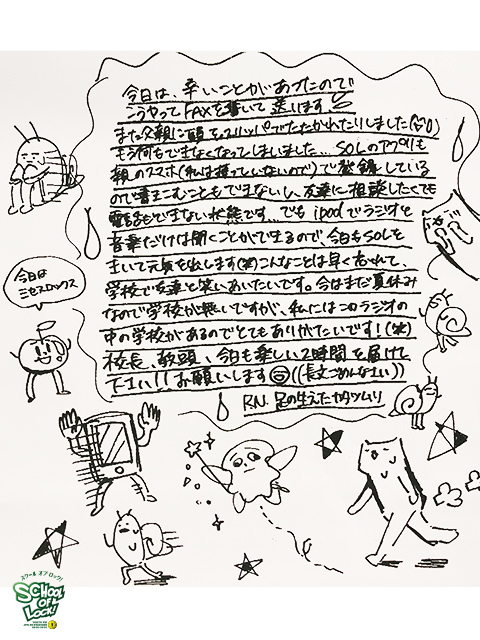 今日は、辛いことがあったので
こうやってFAXを書いて送ります
また父親に頭をスリッパでたたかれたりしました
もう何もできなくなってしまいました…SOLのアプリも
親のスマホ(私は持っていないので)で登録している
ので書きこむこともできないし、友達に相談したくても
電話もできない状態です…でもipodでラジオと
音楽だけは聞くことができるので、今日もSOLを
きいて元気を出します(笑)こんなことは早く忘れて、
学校で友達と笑いあいたいです。今はまだ夏休み
なので学校が無いですが、私にはこのラジオの
中の学校があるのでとてもありがたいです！(笑)
校長、教頭、今日も楽しい2時間を届けて
下さい！！お願いします((長文ごめんなさい))
RN.足の生えたカタツムリ
今日は
ミセスロックス
スクール オブ ロック！
SCHOOL
OF
LOCK!